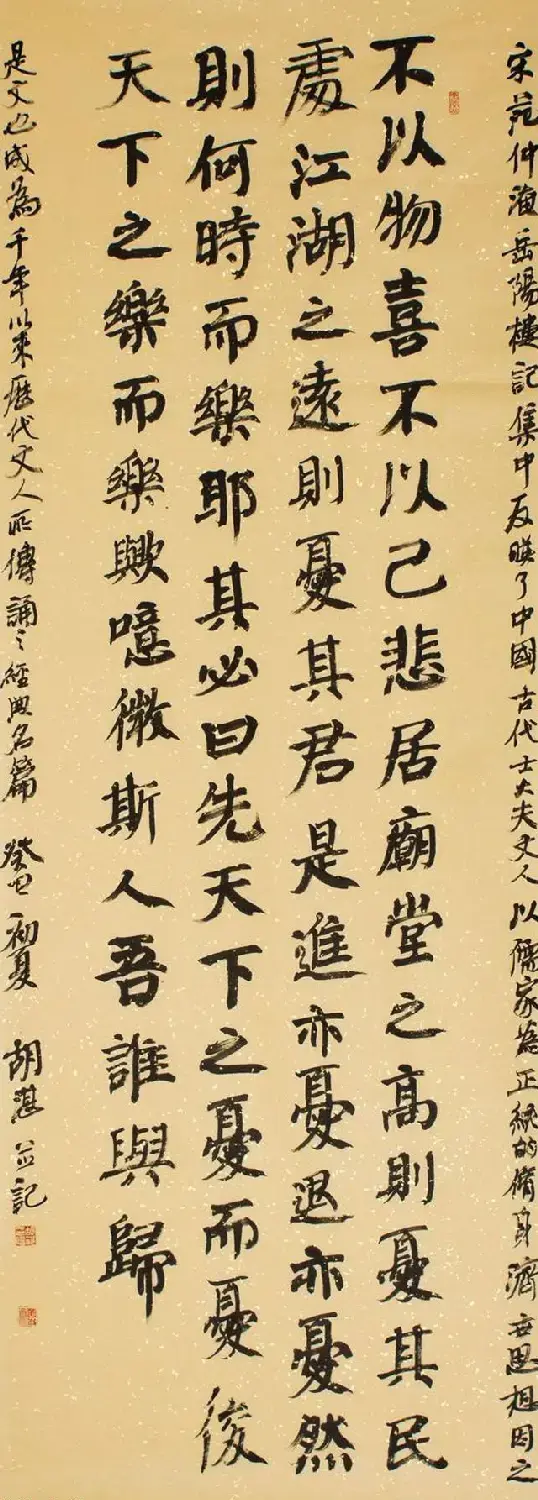 宋范仲淹岳陽樓記集中反映了中國古代士大夫文人以儒家為正統的脩身濟世思想因之
不以物喜不以己悲居廟堂之高則憂其民
處江湖之遠則憂其君是進亦憂退亦憂然
則何時而樂耶其必曰先天下之憂而憂後
天下之樂而樂歟噫微斯人吾誰與歸
是文也成為千年以來歷代文人所傳誦之經典名篇 癸巳初夏 胡湛並記